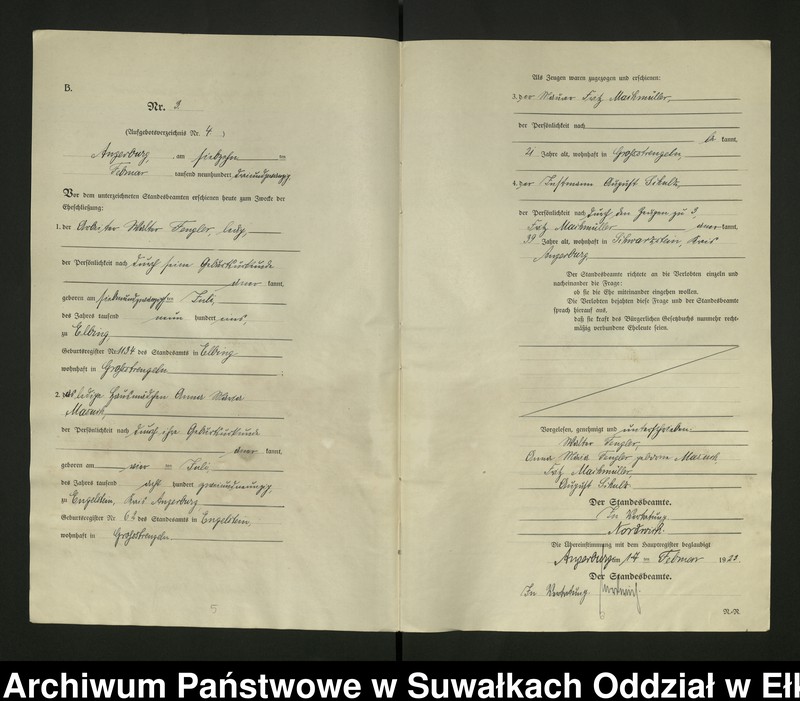 B.
Nr. 3
(Aufgebotsverzeichnis Nr. 4)
Angerburg, am siebzehn ten
Februar tausend neunhundert dreiundzwanzig
Vor dem unterzeichneten Standesbeamten erschienen heute zum Zwecke der
Eheschließung:
1. der Arbeiter Walter Fengler, ledig,
der Persönlichkeit nach durch seine Geburtsurkunde
aner kannt,
geboren am siebenundzwanzigsten Juli,
des Jahres tausend neun hundert eins,
zu Elbing,
Geburtsregister Nr. 1134 des Standesamts in Elbing
wohnhaft in Großstrengeln ;
2. das ledige Hausmädchen Anna Maria
der Persönlichkeit nach durch ihre Geburtsurkunde
aner kannt,
geboren am vier ten Juli,
des Jahres tausend acht hundert zweiundneunzig,
zu Engelstein, Kreis Angerburg
Geburtsregister Nr. 62 des Standesamts in Engelstein,
wohnhaft in Großstrengeln
5
Als Zeugen waren zugezogen und erschienen:
3. der Maurer Fritz Maschmüller,
der Persönlichkeit nach
be kannt,
21 Jahre alt, wohnhaft in Großstrengeln
4. der Instmann August Schulz,
der Persönlichkeit nach durch den Zeugen zu 3,
Fritz Maschmüller aner kannt,
39 Jahre alt, wohnhaft in Schwarzstein, Kreis
Angerburg
Der Standesbeamte richtete an die Verlobten einzeln und
nacheinander die Frage:
ob sie die Ehe miteinander eingehen wollen.
Die Verlobten bejahten diese Frage und der Standesbeamte
sprach hierauf aus,
daß sie kraft des Bürgerlichen Gesetzbuchs nunmehr recht-
mäßig verbundene Eheleute seien.
Vorgelesen, genehmigt und unterschrieben
Walter Fengler,
Anna Maria Fengler geborene
Fritz Maschmüller,
August Schulz
Der Standesbeamte.
In Vertretung
Nordwich
Die Übereinstimmung mit dem Hauptregister beglaubigt
Angerburg am 17 ten Februar 1923
Der Standesbeamte.
In Vertretung
N.N.
Archiwum Państwowe w Suwałkach Oddział w Ełk